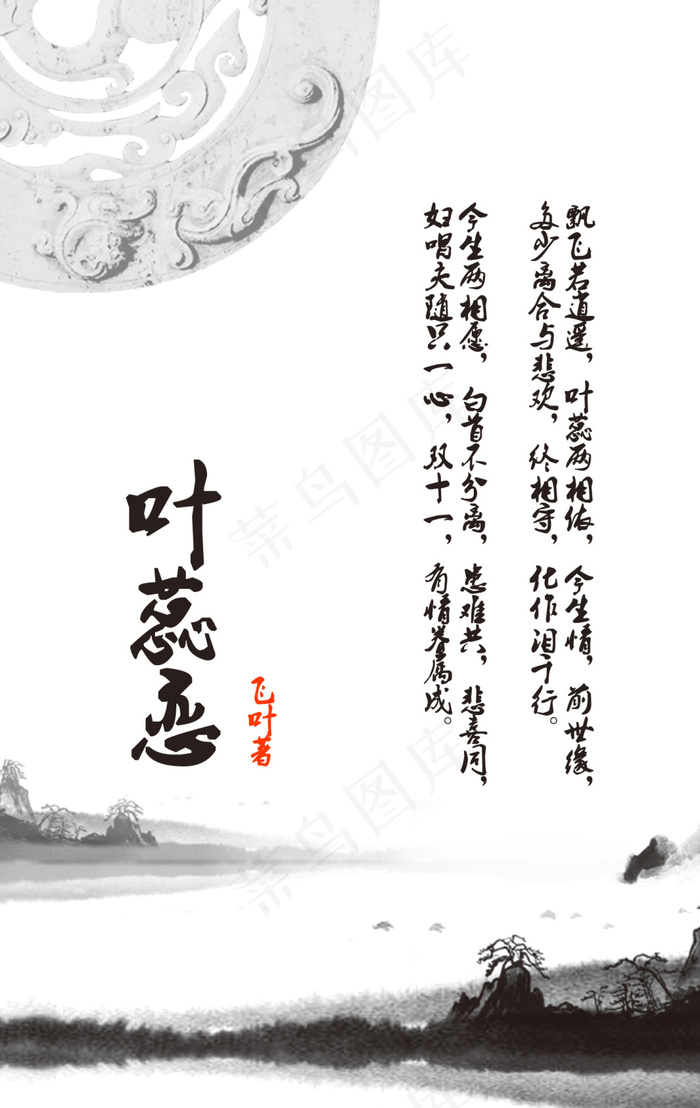 飘飞若逍遥，叶蕊两相依，今生情，前世缘，
多少离合与悲欢，终相守，化作泪千行。
今生两相愿，白首不分离，患难共，悲喜同，
妇唱夫随只一心，双十一，有情眷属成。
叶蕊恋
飞叶著
菜鸟图库
菜鸟图库
菜鸟图库